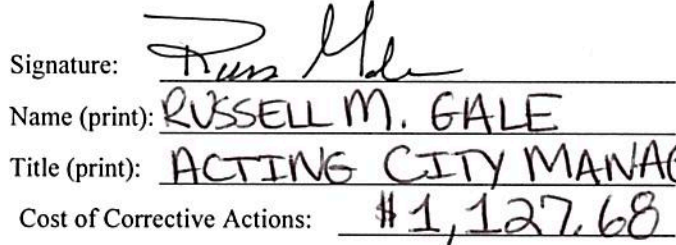 Signature: Russ Gale
Name (print): RUSSELL M. GALE
Title (print): ACTING CITY MANAG
Cost of Corrective Actions: $1,127.68